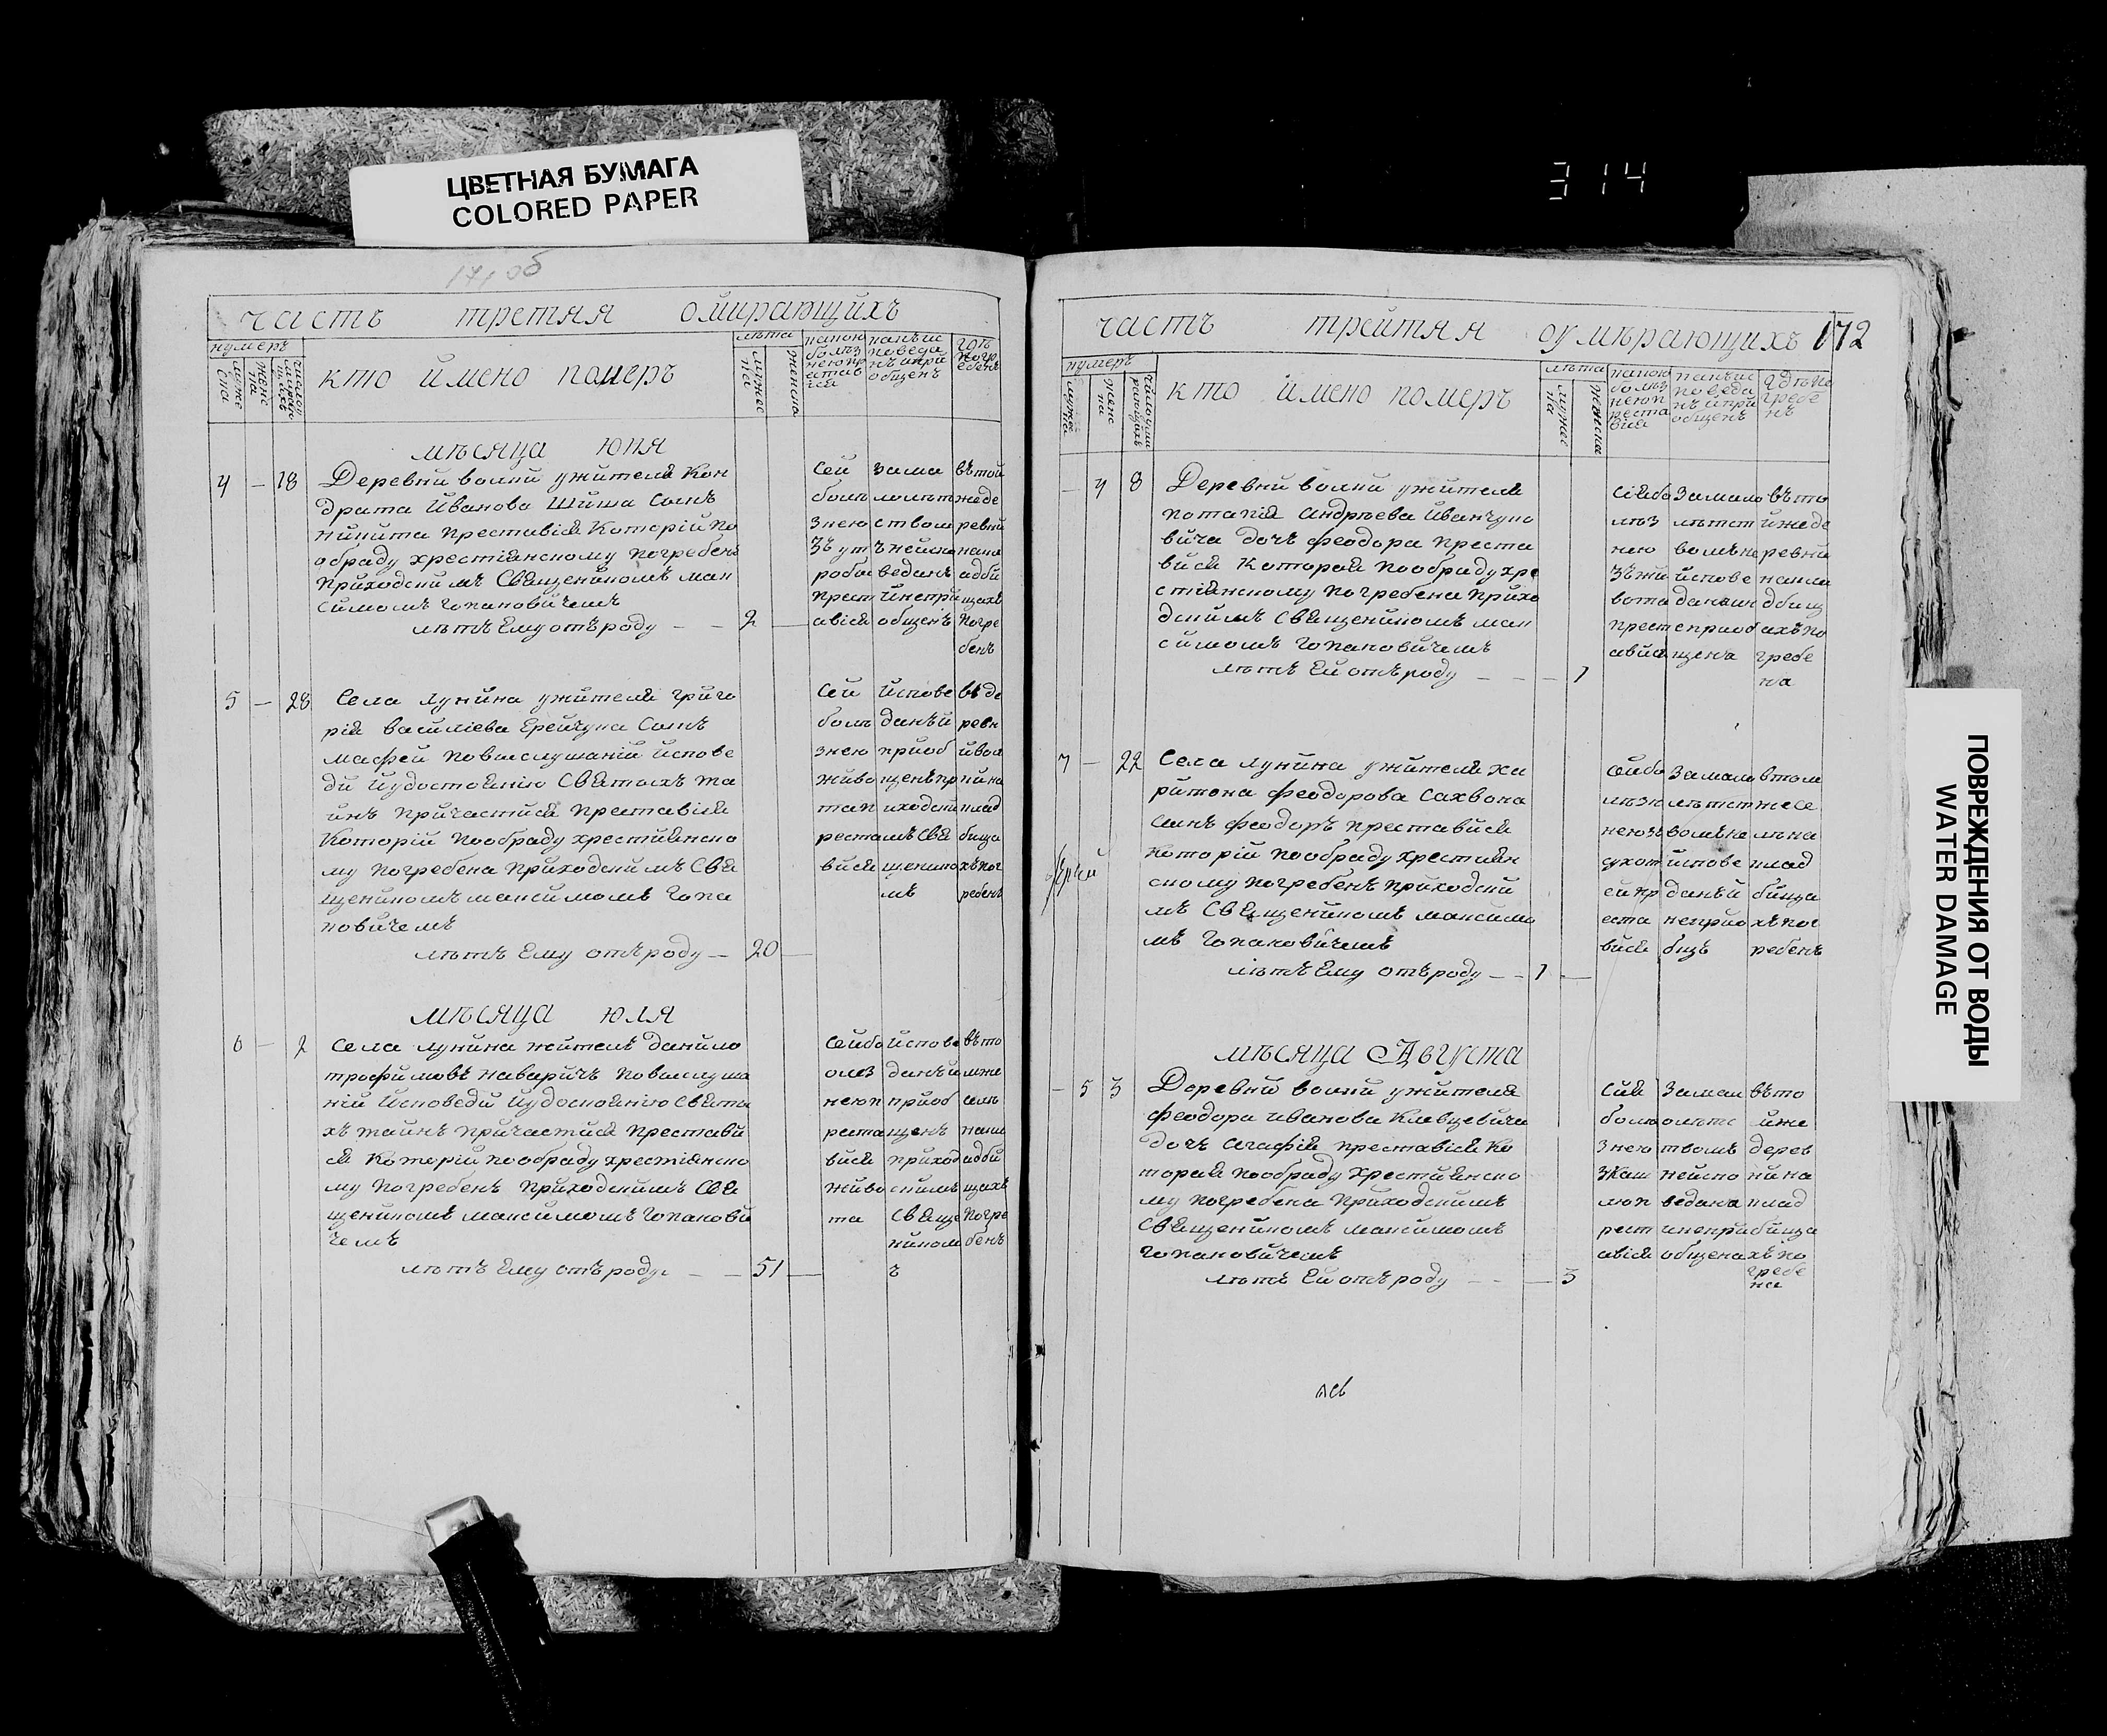 ЦВЕТНАЯ БУМАГА
COLORED PAPER
314
171 об
часть третяя омирающихъ
нумеръ
кто ймено померъ
лѣта
мѣсяца юня
4 — 18 Деревнй волнй ужйтеля Кон
драта Йванова Шйша Сынъ
Нйкйта преставіся Которій по
обраду хрестіянскому погребенъ
Прйходскймъ Священйкомъ Мак
сймомъ Гопановйчемъ
лѣтъ Ему отъ роду — — 2 —
Сей болѣзнею зъ утробы преставіся
за малолѣтствомъ нейсповеданъ й непрйобщенъ
въ той же деревнй на кладбйщахъ погребенъ
5 — 28 Села Лунйна ужйтеля Грйго
рія Васйліева Ерейчука Сынъ
Мафей по выслушанію йспове
дй йудостоянію Святыхъ та
йнъ прйчастйся преставіся
Которій пообраду хрестйянско
му погребена прйходскймъ Свя
щенйкомъ максймомъ Гопа
новйчемъ
лѣтъ Ему отъ роду — 20 —
Сей болѣзнею живота преставйся
йсповеданъ й прйобщенъ прйходскймъ священйкомъ
въ деревнй волй на кладбйщахъ погребенъ
мѣсяца юля
6 — 2 Села Лунйна жйтель Данйло
трофймовъ Наварйчъ по выслуша
ній йсповедй йудостоянію святы
хъ тайнъ прйчастйся преставй
ся Которій пообраду хрестіянско
му погребенъ прйходскймъ Свя
щенйкомъ максймомъ Гопановй
чемъ
лѣтъ Ему отъ роду — — 51 —
Сей болѣзнею преставйся жйвота
йсповеданъ й прйобщенъ прйходскймъ Священйкомъ
въ томже селѣ на кладбйщахъ погребенъ
часть трейтяя оумѣрающихъ 172
нумеръ
кто ймено померъ
лѣта
— 4 8 Деревнй волнй ужйтеля
потапія Андрѣева Йванчуко
вйча дочъ феодора преста
вйся Которая пообраду хре
стіянскому погребена прйхо
дскймъ Священйкомъ мак
сймомъ Гопановйчемъ
лѣтъ Ей отъ роду — — — 1
Сія болѣзнею зъ жйвота преставйся
за малолѣтствомъ не йсповедана й не прйобщена
въ тойже деревнй на кладбйщахъ погребена
7 — 22 Села Лунйна ужйтеля Ха
рйтона феодорова Сахвона
Сынъ феодоръ преставйся
Которій пообраду хрестйян
скому погребенъ прйходскй
мъ Священйкомъ максймо
мъ Гопановйчемъ
лѣтъ Ему отъ роду — — 1 —
Сей болѣзнею зъ сухотей преставйся
за малолѣтствомъ не йсповеданъ й непрйобщъ
втомже селѣ на кладбйщахъ погребенъ
мѣсяца Августа
— 5 3 Деревнй волнй ужйтеля
феодора Йванова Клевцевйча
дочъ Агафія преставіся Ко
торая пообраду хрестйянско
му погребена прйходскймъ
Священйкомъ максймомъ
Гопановйчемъ
лѣтъ Ей отъ роду — — — 3
Сія болѣзнею зкашлю преставіся
за малолѣтствомъ нейсповедана инепрйобщена
въ тойже деревнй на кладбйщахъ погребена
ПОВРЕЖДЕНИЯ ОТ ВОДЫ
WATER DAMAGE